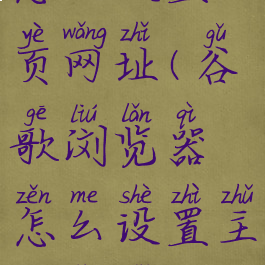 yè wǎng zhǐ gǔ
页网址(谷
gē liú lǎn qì
歌浏览器
zěn me shè zhì zhǔ
怎么设置主